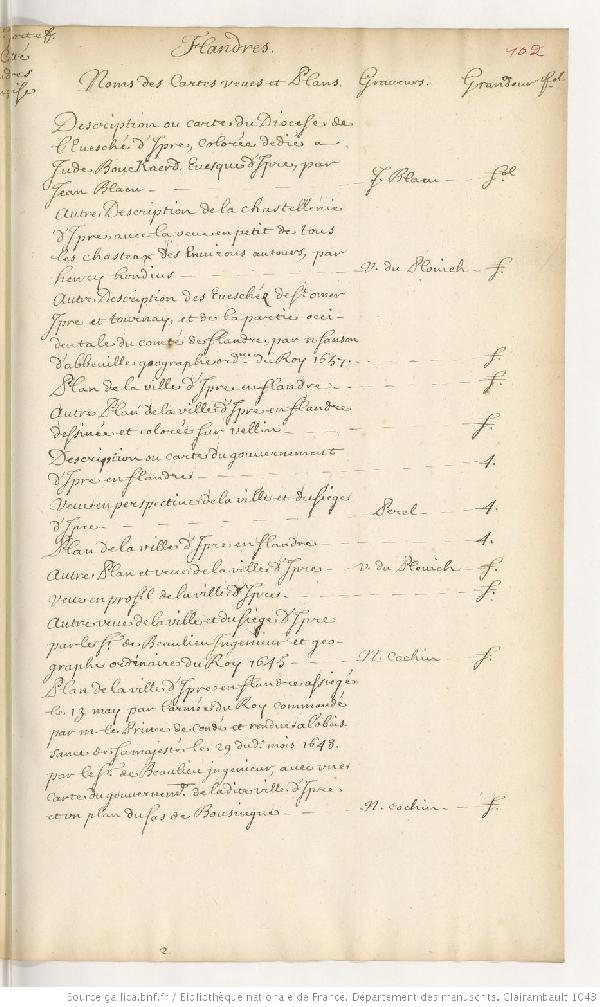 Flandres.
102
Noms des Cartes veues et Plans. Graveurs. Grandeur
Description ou carte du Diocese de
l'Euesché d'Ipre, colorée dedié a
Jude Bouckaerd, Euesque d'Ipre, par
Jean Blaeu - J. Blaeu - fol
Autre Description de la chastellenie
d'Ipre avec la veue en petit de tous
les chasteaux des Environs autours, par
henry hondius - V. du Plouich - f.
Autre Description des Eueschéz de St. omer
Ipre et tournay, et de la partie occi-
dentale du comté de flandre, par n sanson
d'abbeville geographe ordre. du Roy 1657. - f.
Plan de la ville d'Ipre en flandre - f.
Autre Plan de la ville d'Ipre en flandre
dessinée et colorée sur vellin - f.
Description ou carte du gouvernement
d'Ipre en flandre - 4.
Veue en perspective de la ville et du siege
d'Ipre - Perel - 4.
Plan de la ville d'Ipre en flandre - 4.
Autre Plan et veue de la ville d'Ipre - v. du Plouich - f.
Veue en profil de la ville d'Ipre - f.
Autre veue de la ville et du siege d'Ipre
par le Sr. de Beaulieu Ingenieur et geo-
graphe ordinaire du Roy 1645 - N. Cochin - f.
Plan de la ville d'Ipre en flandre assiegée
le 13 may par l'armée du Roy commandé
par m. le Prince de Condé et rendue a lobeis
sance de sa majesté le 29 dud. mois 1648.
par le Sr. de Beaulieu ingenieur, avec vne
carte du gouvernemt. de ladite ville d'Ipre,
et vn plan du fas de Bousingue - N. cochin - f.
2
Source gallica.bnf.fr / Bibliothèque nationale de France. Département des manuscrits. Clairambault 1043